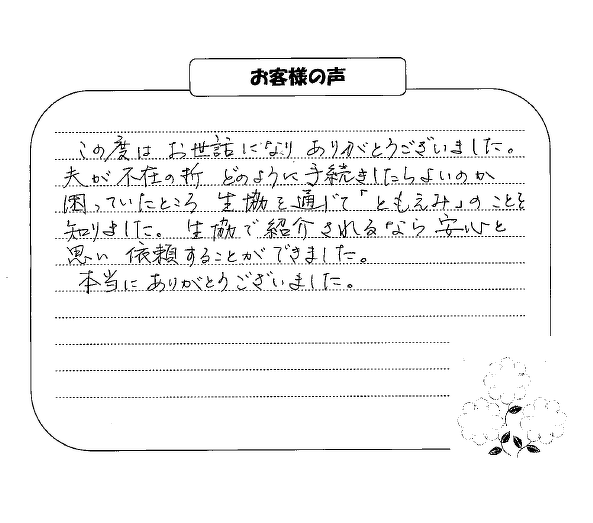 お客様の声
この度は お世話になり ありがとうございました。
夫が不在の折 どのように手続きしたらよいのか
困っていたところ 生協を通じて「ともえみ」のことを
知りました。 生協で紹介されるなら 安心と
思い 依頼することができました。
本当に ありがとうございました。